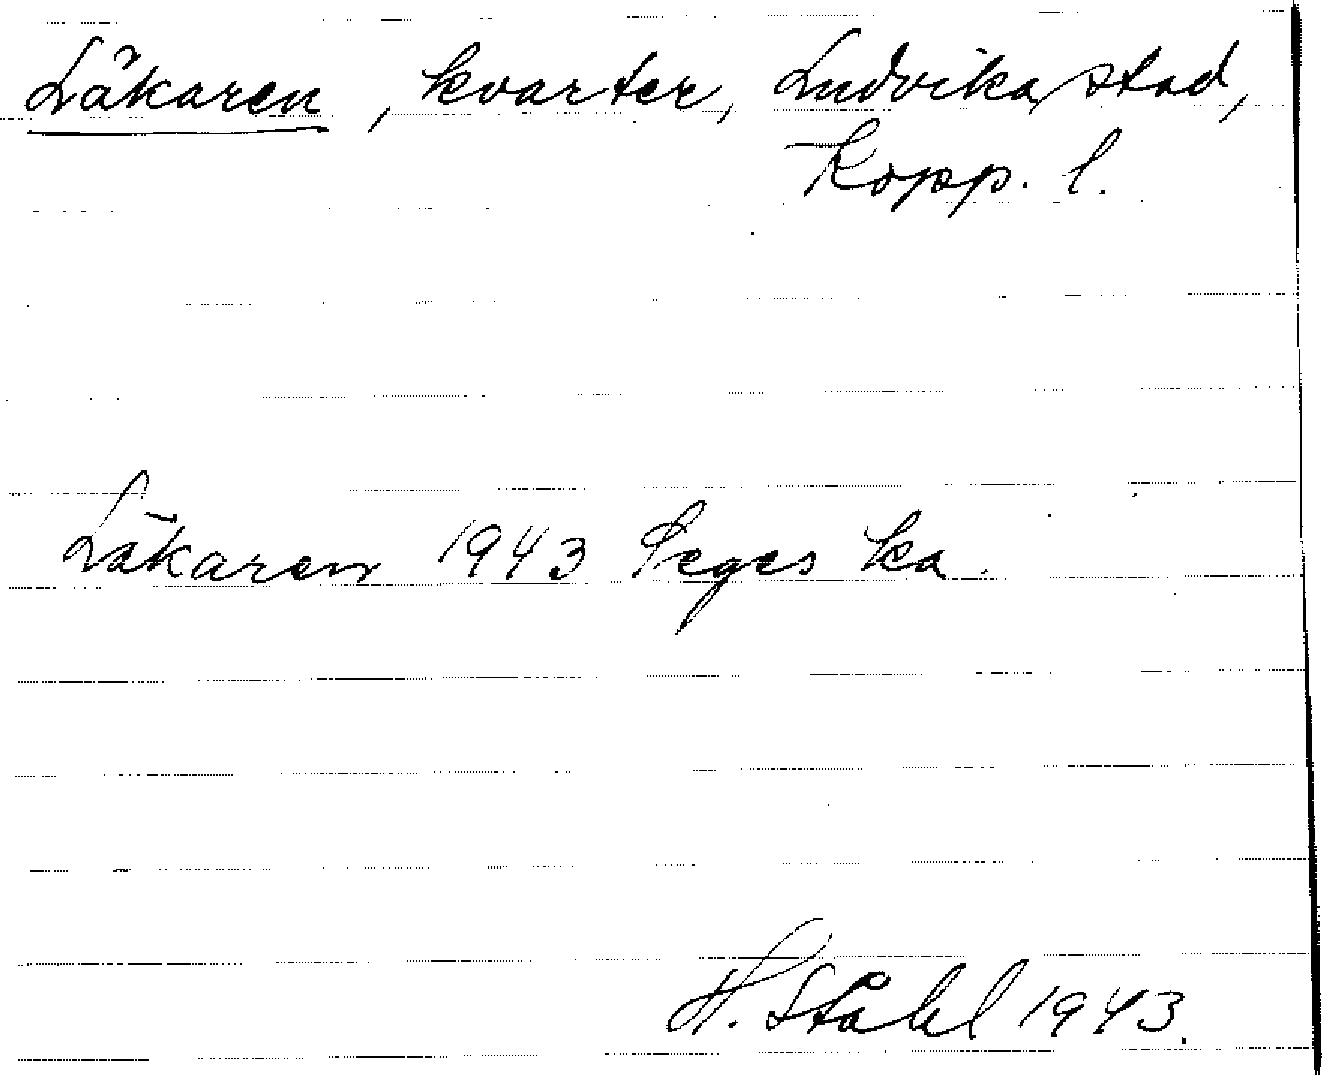 Läkaren, kvarter, Ludvika stad,
Kopp. l.
Läkaren 1943 Seges ka.
H. Ståhl 1943.